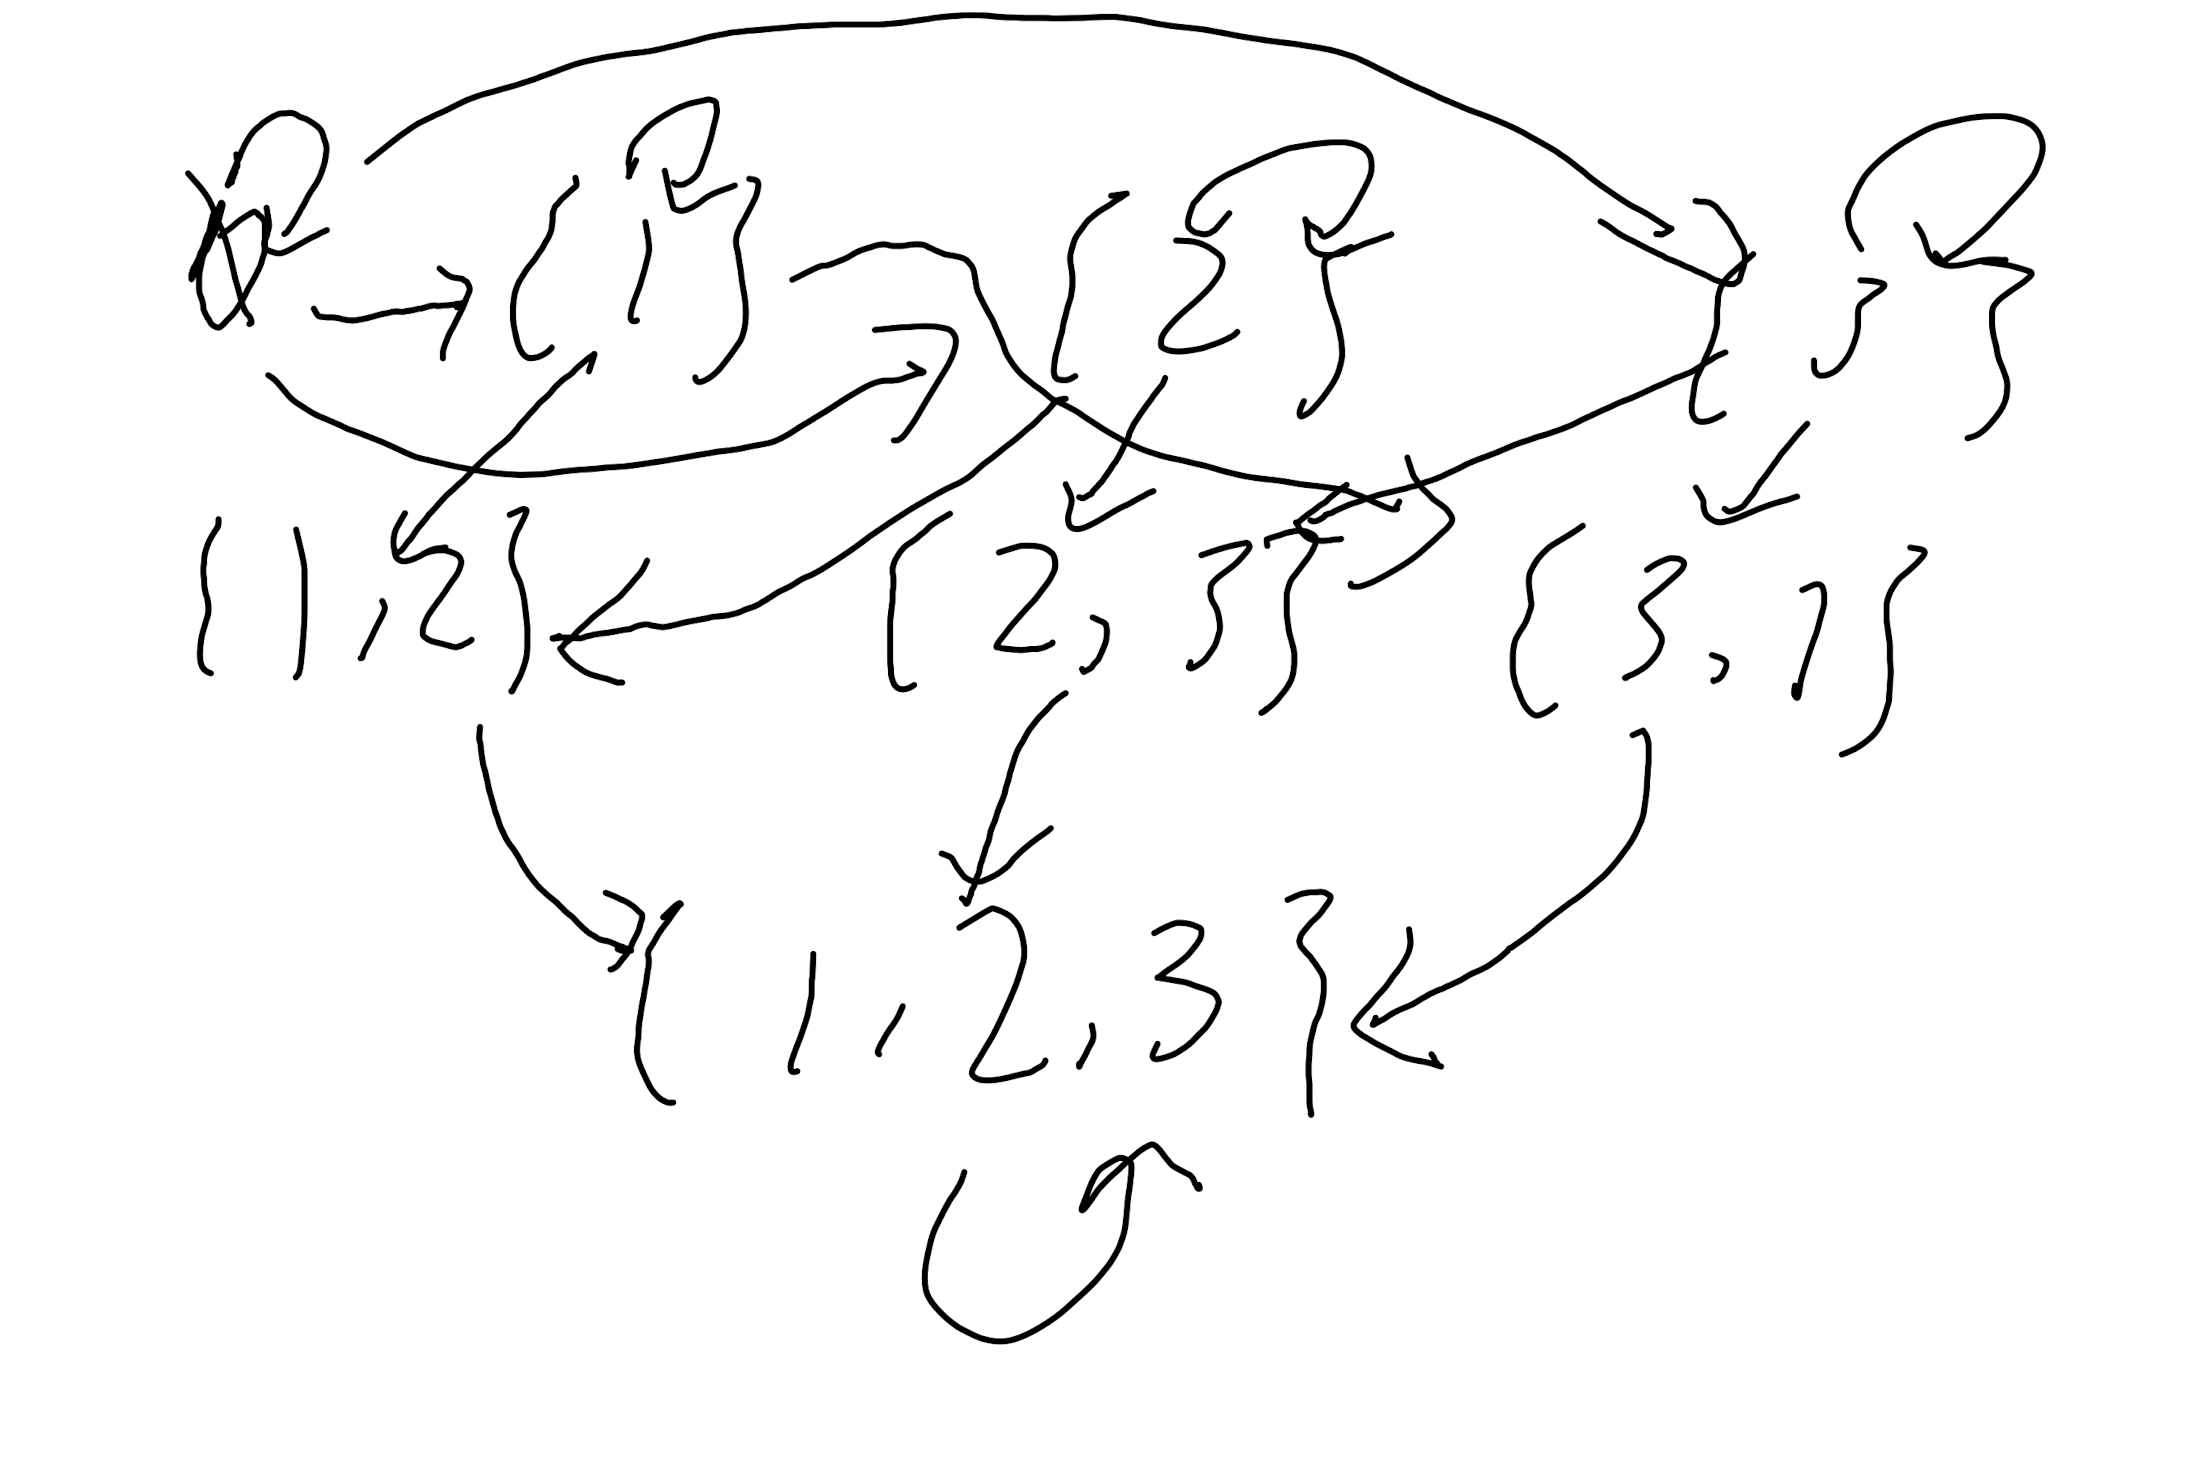 ∅ {1} {2} {3}
{1,2} {2,3} {3,1}
{1,2,3}